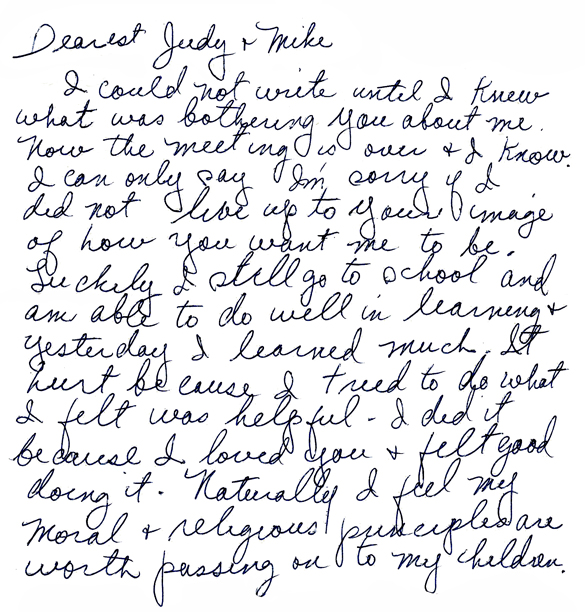 Dearest Judy + Mike
I could not write until I knew
what was bothering you about me.
Now the meeting is over + I know.
I can only say I'm sorry if I
did not live up to your image
of how you want me to be.
Luckily I still go to school and
am able to do well in learning +
yesterday I learned much. It
hurt because I tried to do what
I felt was helpful - I did it
because I loved you + felt good
doing it. Naturally I feel my
moral + religious principles are
worth passing on to my children.